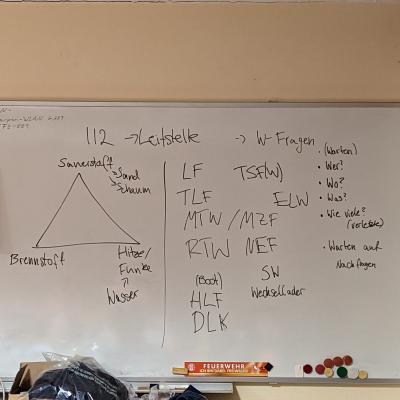 112 → Leitstelle → W-Fragen
Sauerstoff
→ Sand
→ Schaum
Brennstoff
Hitze/
Funke
↑
Wasser
LF TSF(W)
TLF ELW
MTW / MZF
RTW NEF
(Boot) SW
HLF Wechsellader
DLK
• (Warten)
• Wer?
• Wo?
• Was?
• Wie viele?
(verletzte)
• Warten auf
Nachfragen
FEUERWEHR
ICH BIN DABEI. FREIWILLIG